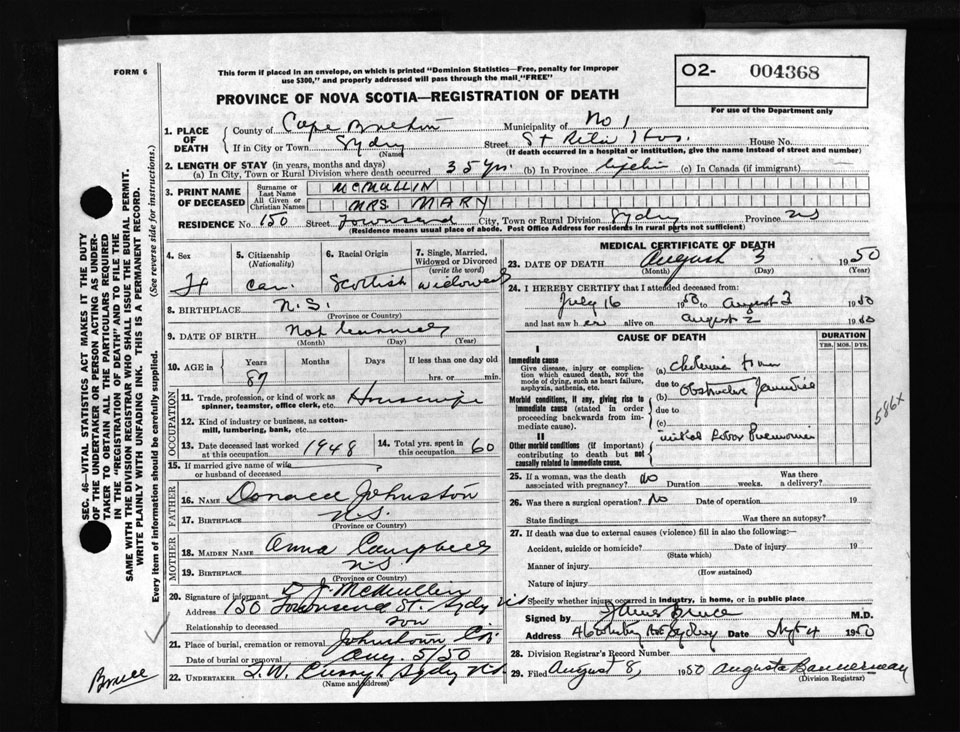 FORM 6
This form if placed in an envelope, on which is printed "Dominion Statistics—Free, penalty for improper
use $300," and properly addressed will pass through the mail "FREE"
PROVINCE OF NOVA SCOTIA—REGISTRATION OF DEATH
O2- 004368
For use of the Department only
SEC. 46—VITAL STATISTICS ACT MAKES IT THE DUTY
OF THE UNDERTAKER OR PERSON ACTING AS UNDER-
TAKER TO OBTAIN ALL THE PARTICULARS REQUIRED
IN THE "REGISTRATION OF DEATH" AND TO FILE THE
SAME WITH THE DIVISION REGISTRAR WHO SHALL ISSUE THE BURIAL PERMIT.
WRITE PLAINLY WITH UNFADING INK. THIS IS A PERMANENT RECORD.
Every item of information should be carefully supplied. (See reverse side for instructions.)
1. PLACE OF DEATH
County of Cape Breton Municipality of No 1
If in City or Town Sydney Street St Rita Hos. House No.
(Name) (If death occurred in a hospital or institution, give the name instead of street and number)
2. LENGTH OF STAY (in years, months and days)
(a) In City, Town or Rural Division where death occurred 35 yrs. (b) In Province (c) In Canada (if immigrant)
3. PRINT NAME OF DECEASED
Surname or Last Name MCMULLIN
All Given or Christian Names MRS. MARY
RESIDENCE No. 150 Street Townsend City, Town or Rural Division Sydney Province NS
(Residence means usual place of abode. Post Office Address for residents in rural parts not sufficient)
4. Sex F
5. Citizenship (Nationality) Can.
6. Racial Origin Scottish
7. Single, Married, Widowed or Divorced (write the word) Widowed
8. BIRTHPLACE N.S.
(Province or Country)
9. DATE OF BIRTH Not
(Month) (Day) (Year)
10. AGE in Years Months Days If less than one day old
87 hrs. or min.
OCCUPATION
11. Trade, profession or kind of work as spinner, teamster, office clerk, etc. Housewife
12. Kind of industry or business, as cotton-mill, lumbering, bank, etc.
13. Date deceased last worked at this occupation 1948
14. Total yrs. spent in this occupation 60
15. If married give name of wife or husband of deceased
FATHER
16. NAME Donald Johnston
17. BIRTHPLACE N.S.
(Province or Country)
MOTHER
18. MAIDEN NAME Anna Campbell
19. BIRTHPLACE N.S.
(Province or Country)
20. Signature of informant J. McMullin
Address 150 Townsend St. Sydney NS
Relationship to deceased son
21. Place of burial, cremation or removal Johnstown Co.
Date of burial or removal Aug. 5/50
22. UNDERTAKER T.W. Curry Sydney NS
(Name and Address)
Bruce
MEDICAL CERTIFICATE OF DEATH
23. DATE OF DEATH August 3 1950
(Month) (Day) (Year)
24. I HEREBY CERTIFY that I attended deceased from:
July 16 1950 to August 2 1950
and last saw her alive on August 2 1950
CAUSE OF DEATH
DURATION
YRS. MOS. DYS.
I
Immediate cause
Give disease, injury or complication which caused death, NOT the mode of dying, such as heart failure, asphyxia, asthenia, etc.
(a) from
due to
(b) Obstructive Jaundice
Morbid conditions, if any, giving rise to immediate cause (stated in order proceeding backwards from immediate cause).
due to
(c)
II
Other morbid conditions (if important) contributing to death but not causally related to immediate cause.
Lobar Pneumonia
586X
25. If a woman, was the death associated with pregnancy? No Duration weeks. Was there a delivery?
26. Was there a surgical operation? No Date of operation 19
State findings Was there an autopsy?
27. If death was due to external causes (violence) fill in also the following:—
Accident, suicide or homicide? Date of injury 19
(State which)
Manner of injury
(How sustained)
Nature of injury
Specify whether injury occurred in industry, in home, or in public place
Signed by James Bruce M.D.
Address Sydney Date Sept 4 1950
28. Division Registrar's Record Number
29. Filed August 8, 1950 Augusta Bannerman
(Division Registrar)